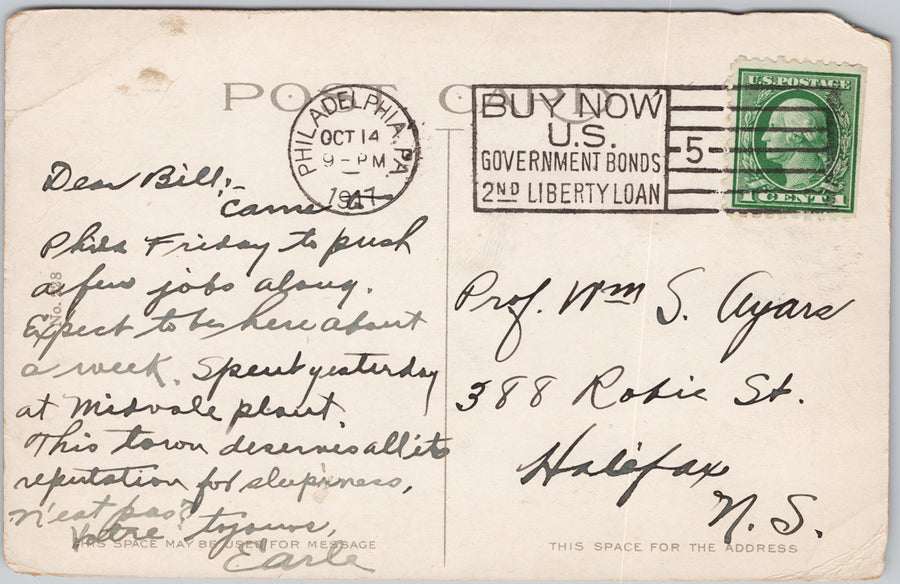 POST CARD
PHILADELPHIA, PA.
OCT 14
9-PM
1917
BUY NOW
U.S.
GOVERNMENT BONDS
2ND LIBERTY LOAN
5
U.S. POSTAGE
1 CENT 1
Dear Bill;-
Came to
Phila Friday to push
a few jobs along.
Expect to be here about
a week. Spent yesterday
at Midvale plant.
This town deserves all its
reputation for sleepiness,
n'est pas?
Votre toujours,
Earle
THIS SPACE MAY BE USED FOR MESSAGE
Prof. Wm S. Ayars
388 Robie St.
Halifax
N.S.
THIS SPACE FOR THE ADDRESS